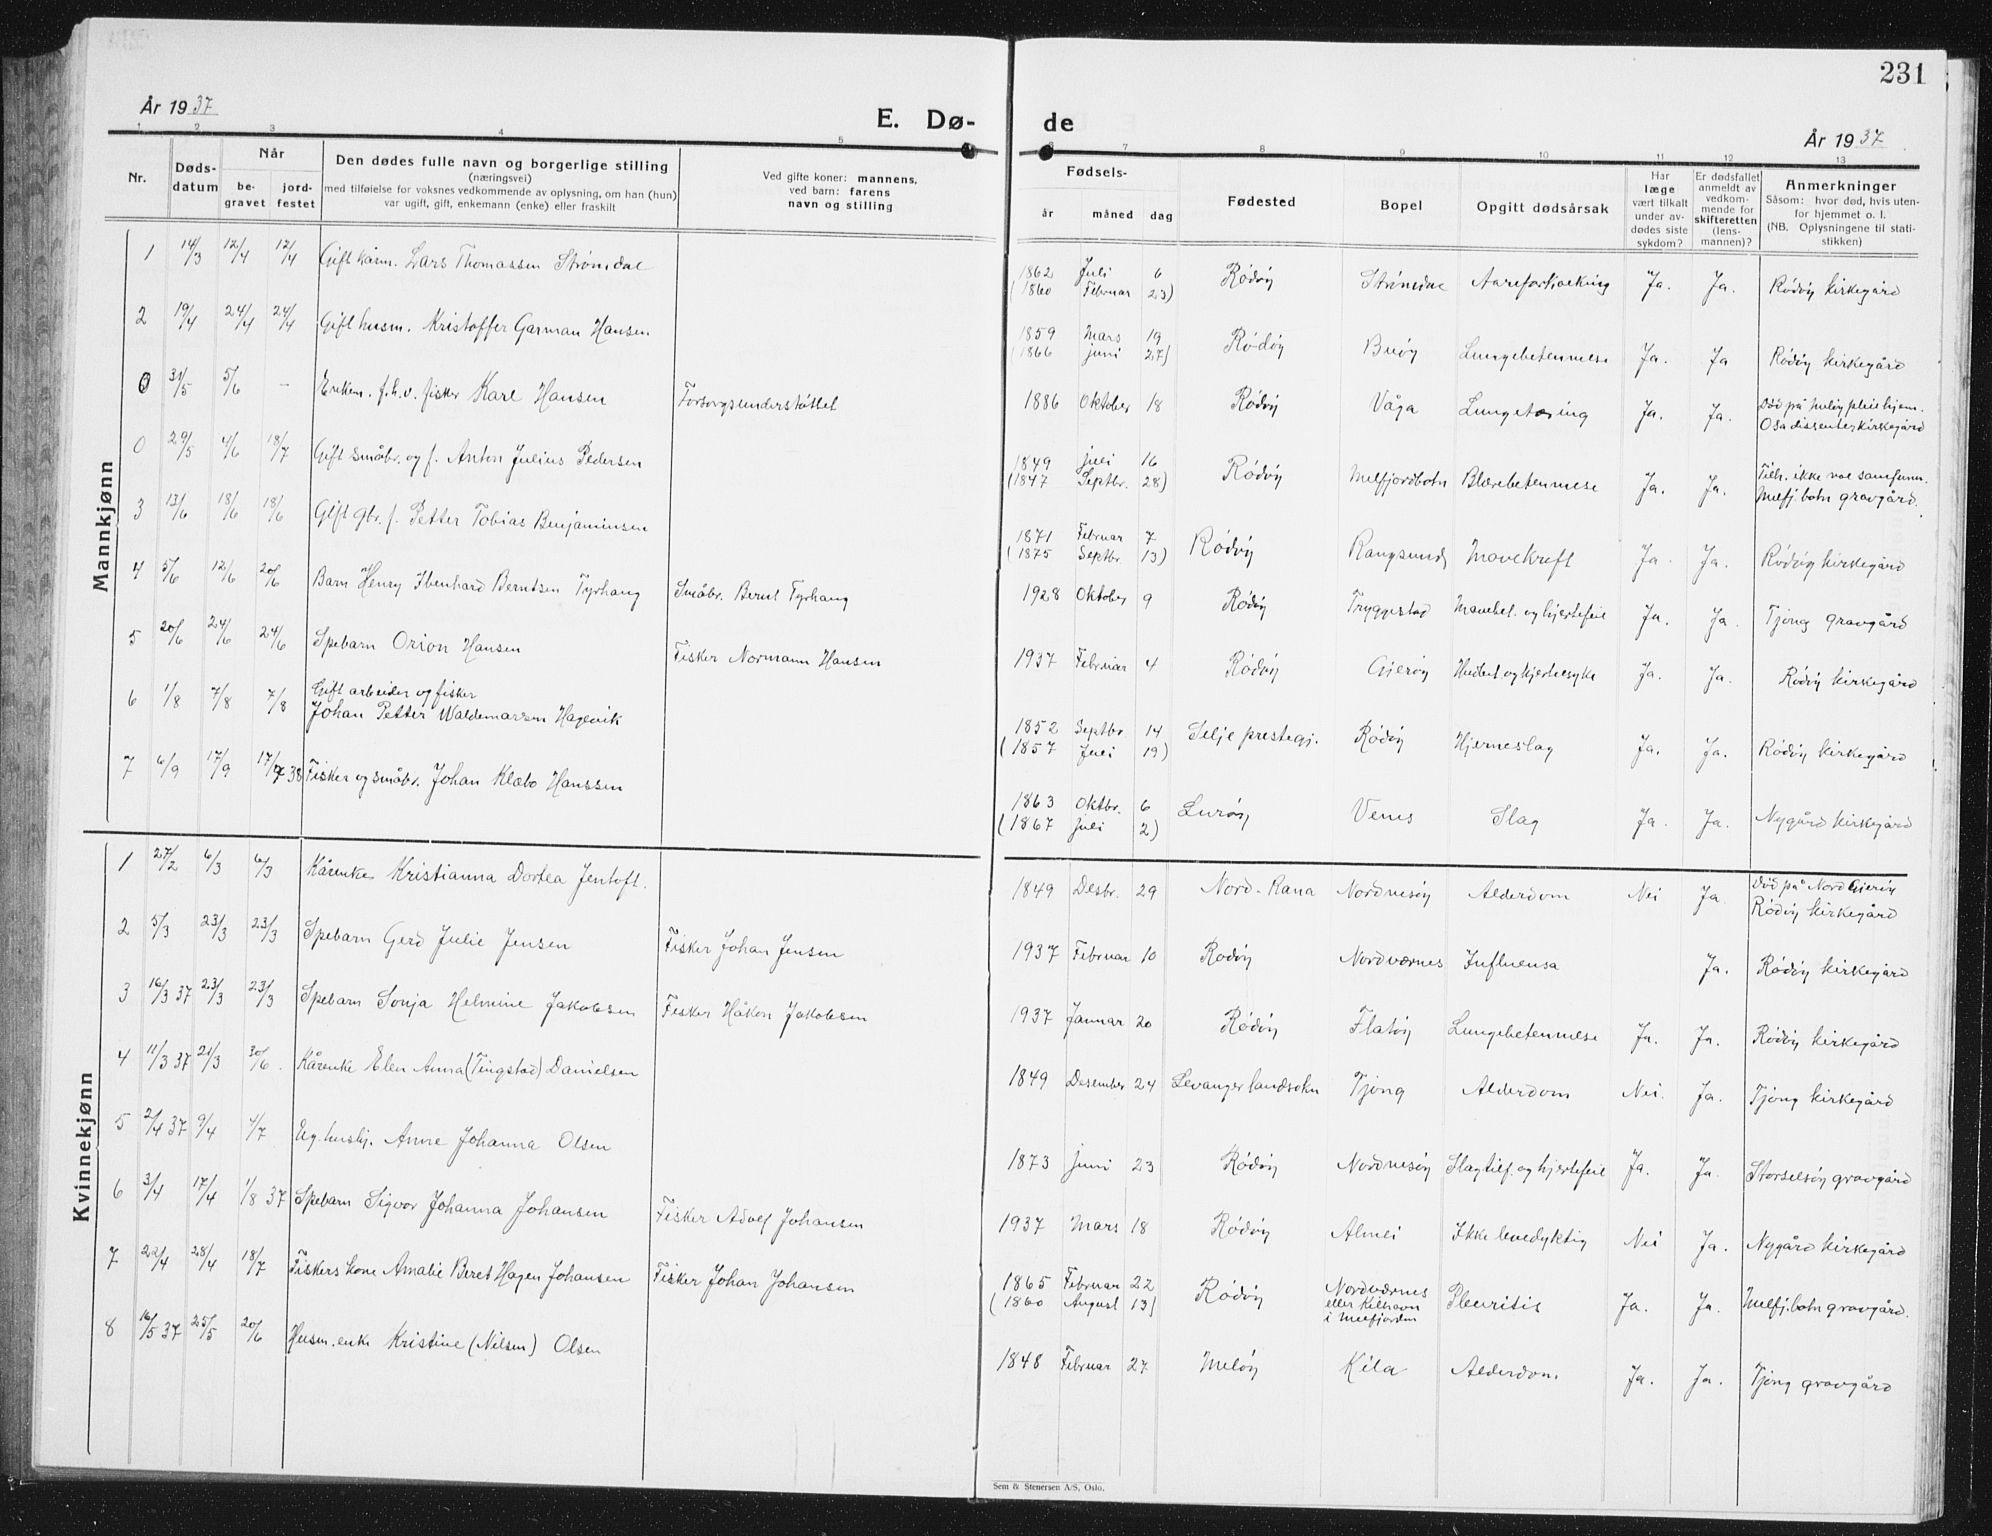 231
År 1937 E. Dø- de År 1937
1 2 3 4 5 6 7 8 9 10 11 12 13
Nr. Døds-datum Når be-gravet jord-festet Den dødes fulle navn og borgerlige stilling (næringsvei) med tilføielse for voksnes vedkommende av oplysning, om han (hun) var ugift, gift, enkemann (enke) eller fraskilt Ved gifte koner: mannens, ved barn: farens navn og stilling Fødsels- år måned dag Fødested Bopel Opgitt dødsårsak Har læge vært tilkalt under av-dødes siste sykdom? Er dødsfallet anmeldt av vedkom-mende for skifteretten (lens-mannen)? Anmerkninger Såsom: hvor død, hvis uten-for hjemmet o. l. (NB. Oplysningene til stati-stikken)
Mannkjønn
1 14/3 12/4 12/4 Gift kårm. Lars Thomassen Strømdal 1862 Juli 6 (1860 Februar 23) Rødøy Strømdal Aareforkalkning Ja. Ja. Rødøy kirkegård
2 19/4 24/4 24/4 Gift husm. Kristoffer Garman Hansen 1859 Mars 19 (1866 juni 27) Rødøy Buøy Lungebetennelse Ja. Ja Rødøy kirkegård
0 31/5 5/6 - Enkem. f.h.v. fisker Karl Hansen Forsorgsunderstøttet 1886 Oktober 18 Rødøy Våga Lungetæring Ja. Ja. Død på Meløy pleiehjem. Osa dissenterkirkegård
0 29/5 4/6 18/7 Gift småbr. og f. Anton Julius Pedersen 1849 juli 16 (1847 Septbr. 28) Rødøy Melfjordbotn Blærebetennelse Ja. Ja. Tilh. ikke noe samfunn. Melfj.botn gravgård.
3 13/6 18/6 18/6 Gift gbr. f. Petter Tobias Benjaminsen 1871 Februar 7 (1875 Septbr. 13) Rødøy Rangsund Mavekreft Ja. Ja. Rødøy kirkegård
4 5/6 12/6 20/6 Barn Henry Ibenhard Berntsen Tyrhaug Småbr. Bernt Tyrhaug 1928 Oktober 9 Rødøy Tryggestad Mavebet. og hjertefeil Ja. Ja. Tjong gravgård
5 20/6 24/6 24/6 Spebarn Orion Hansen Fisker Normann Hansen 1937 Februar 4 Rødøy Gjerøy og hjertesyke Ja. Ja. Rødøy kirkegård
6 1/8 7/8 7/8 Gift arbeider og fisker Johan Petter Waldemarsen Hagevik 1852 Septbr 14 (1857 Juli 19) Selje prestegj. Rødøy Hjerneslag Ja. Ja. Rødøy kirkegård
7 6/9 17/9 17/7 38 Fisker og småbr. Johan Klæbo Hanssen 1863 Oktbr. 6 (1867 juli 2) Lurøy Venes Slag Ja. Ja. Nygård kirkegård
Kvinnekjønn
1 27/2 6/3 6/3 Kårenke Kristianna Dortea Jentoft. 1849 Desbr. 29 Nord-Rana Nordnesøy Alderdom Nei Ja Død på Nord Gjerøy Rødøy kirkegård
2 5/3 23/3 23/3 Spebarn Gerd Julie Jensen Fisker Johan Jensen 1937 Februar 10 Rødøy Nordværnes Influensa Ja. Rødøy kirkegård
3 16/3 37 23/3 23/3 Spebarn Sonja Helmine Jakobsen Fisker Håkon Jakobsen 1937 Januar 20 Rødøy Flatøy Lungebetennelse Ja. Ja. Rødøy kirkegård
4 11/3 37 21/3 30/6. Kårenke Elen Anna (Tingstad) Danielsen 1849 Desember 24 Levanger landsokn Tjong Alderdom Nei. Ja. Tjong kirkegård
5 2/4 37 9/4 4/7 Ug. hushj. Anne Johanna Olsen 1873 juni 23 Rødøy Nordnesøy Slagtilf. og hjertefeil Ja. Ja. Storselsøy gravgård
6 3/4 17/4 1/8 37 Spebarn Sigvor Johanna Johansen Fisker Adolf Johansen 1937 Mars 18 Rødøy Almei Ikke levedyktig Nei Ja. Nygård kirkegård
7 22/4 28/4 18/7 Fiskers kone Amalie Beret Hagen Johansen Fisker Johan Johansen 1865 Februar 22 (1860 August 13) Rødøy Nordværnes eller Kilhavn i Melfjorden Pleuritis Ja. Ja. Melfj.botn gravgård.
8 16/5 37 25/5 20/6 Husm. enke Kristine (Nilsen) Olsen 1848 Februar 27 Meløy Kila Alderdom. Ja. Ja. Tjong gravgård
Sem & Stenersen A/S, Oslo.